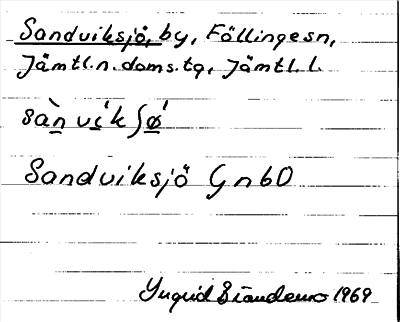 Sandviksjö, by, Föllinge sn,
Jämtl. n. doms. tg, Jämtl. l.
sàn víkʃǿ
Sandviksjö GnbO
Yngrid 1969